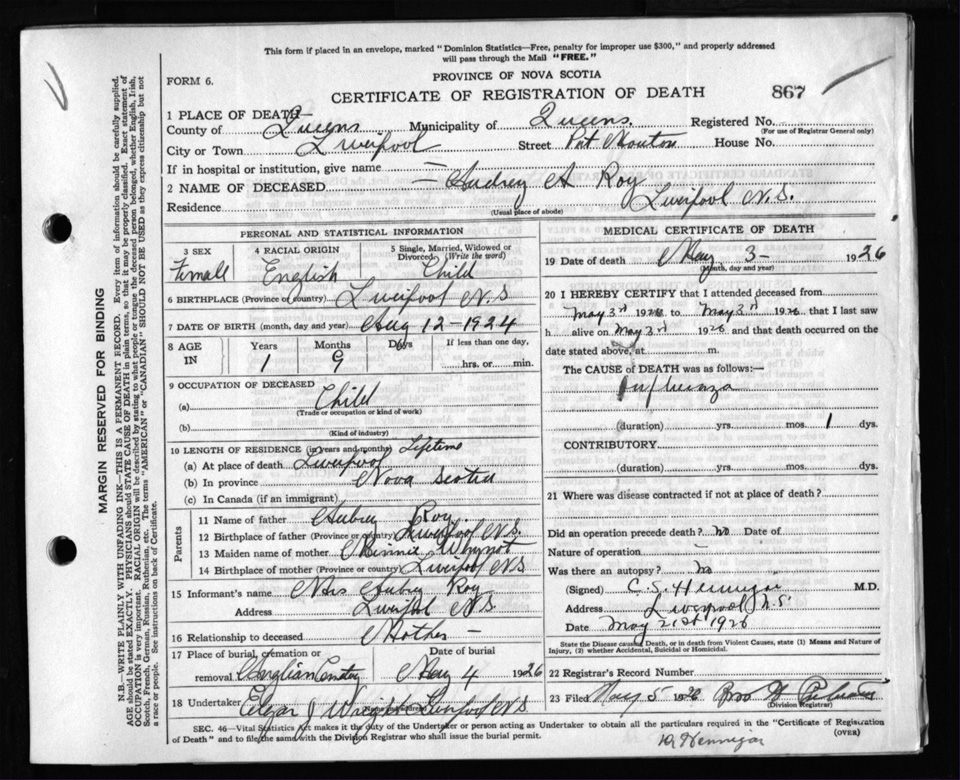 This form if placed in an envelope, marked "Dominion Statistics—Free, penalty for improper use $300," and properly addressed
will pass through the Mail "FREE."
FORM 6.
PROVINCE OF NOVA SCOTIA
CERTIFICATE OF REGISTRATION OF DEATH
867
1 PLACE OF DEATH—
County of Queens Municipality of Queens. Registered No.
(For use of Registrar General only)
City or Town Liverpool Street House No.
If in hospital or institution, give name —
2 NAME OF DECEASED — Audrey A Roy
Residence Liverpool N.S.
(Usual place of abode)
PERSONAL AND STATISTICAL INFORMATION
3 SEX
Female
4 RACIAL ORIGIN
English
5 Single, Married, Widowed or
Divorced (Write the word)
Child
6 BIRTHPLACE (Province or country) Liverpool N.S
7 DATE OF BIRTH (month, day and year) Aug 12—1924
8 AGE IN
Years
1
Months
9
Days
If less than one day,
hrs. or min.
9 OCCUPATION OF DECEASED
(a) Child
(Trade or occupation or kind of work)
(b)
(Kind of industry)
10 LENGTH OF RESIDENCE (in years and months) Lifetime
(a) At place of death Liverpool
(b) In province Nova Scotia
(c) In Canada (if an immigrant)
Parents
11 Name of father Aubrey Roy
12 Birthplace of father (Province or country) Liverpool N.S.
13 Maiden name of mother Minnie Whynot
14 Birthplace of mother (Province or country) Liverpool N S
15 Informant's name Mrs Aubrey Roy
Address Liverpool N.S.
16 Relationship to deceased Mother —
17 Place of burial, cremation or
removal
Date of burial
May 4 1926
18 Undertaker Edgar J Wright Liverpool N.S
MEDICAL CERTIFICATE OF DEATH
19 Date of death May 3— 1926
(Month, day and year)
20 I HEREBY CERTIFY that I attended deceased from
May 3rd 1926 to May 3rd 1926 that I last saw
h alive on May 3rd 1926 and that death occurred on the
date stated above, at m.
The CAUSE OF DEATH was as follows:—
Influenza
(duration) yrs. mos. 1 dys.
CONTRIBUTORY
(duration) yrs. mos. dys.
21 Where was disease contracted if not at place of death?
Did an operation precede death? no Date of
Nature of operation —
Was there an autopsy? no
(Signed) C. S. Hennigar M.D.
Address Liverpool N.S.
Date May 21st 1926
State the Disease causing Death, or in death from Violent Causes, state (1) Means and Nature of
Injury, (2) whether Accidental, Suicidal or Homicidal.
22 Registrar's Record Number
23 Filed May 5 1926
(Division Registrar)
SEC. 46—Vital Statistics Act makes it the duty of the Undertaker or person acting as Undertaker to obtain all the particulars required in the "Certificate of Registration
of Death" and to file the same with the Division Registrar who shall issue the burial permit.
(OVER)
Dr Hennigar
MARGIN RESERVED FOR BINDING
N.B.—WRITE PLAINLY WITH UNFADING INK—THIS IS A PERMANENT RECORD. Every item of information should be carefully supplied.
AGE should be stated EXACTLY. PHYSICIANS should STATE CAUSE OF DEATH in plain terms, so that it may be properly classified. Exact statement of
OCCUPATION is very important. RACIAL ORIGIN will be described by stating to what people or tongue the deceased person belonged, whether English, Irish,
Scotch, French, German, Russian, Ruthenian, etc. The terms "AMERICAN" or "CANADIAN" SHOULD NOT BE USED as they express citizenship but not
a race or people. See instructions on back of Certificate.